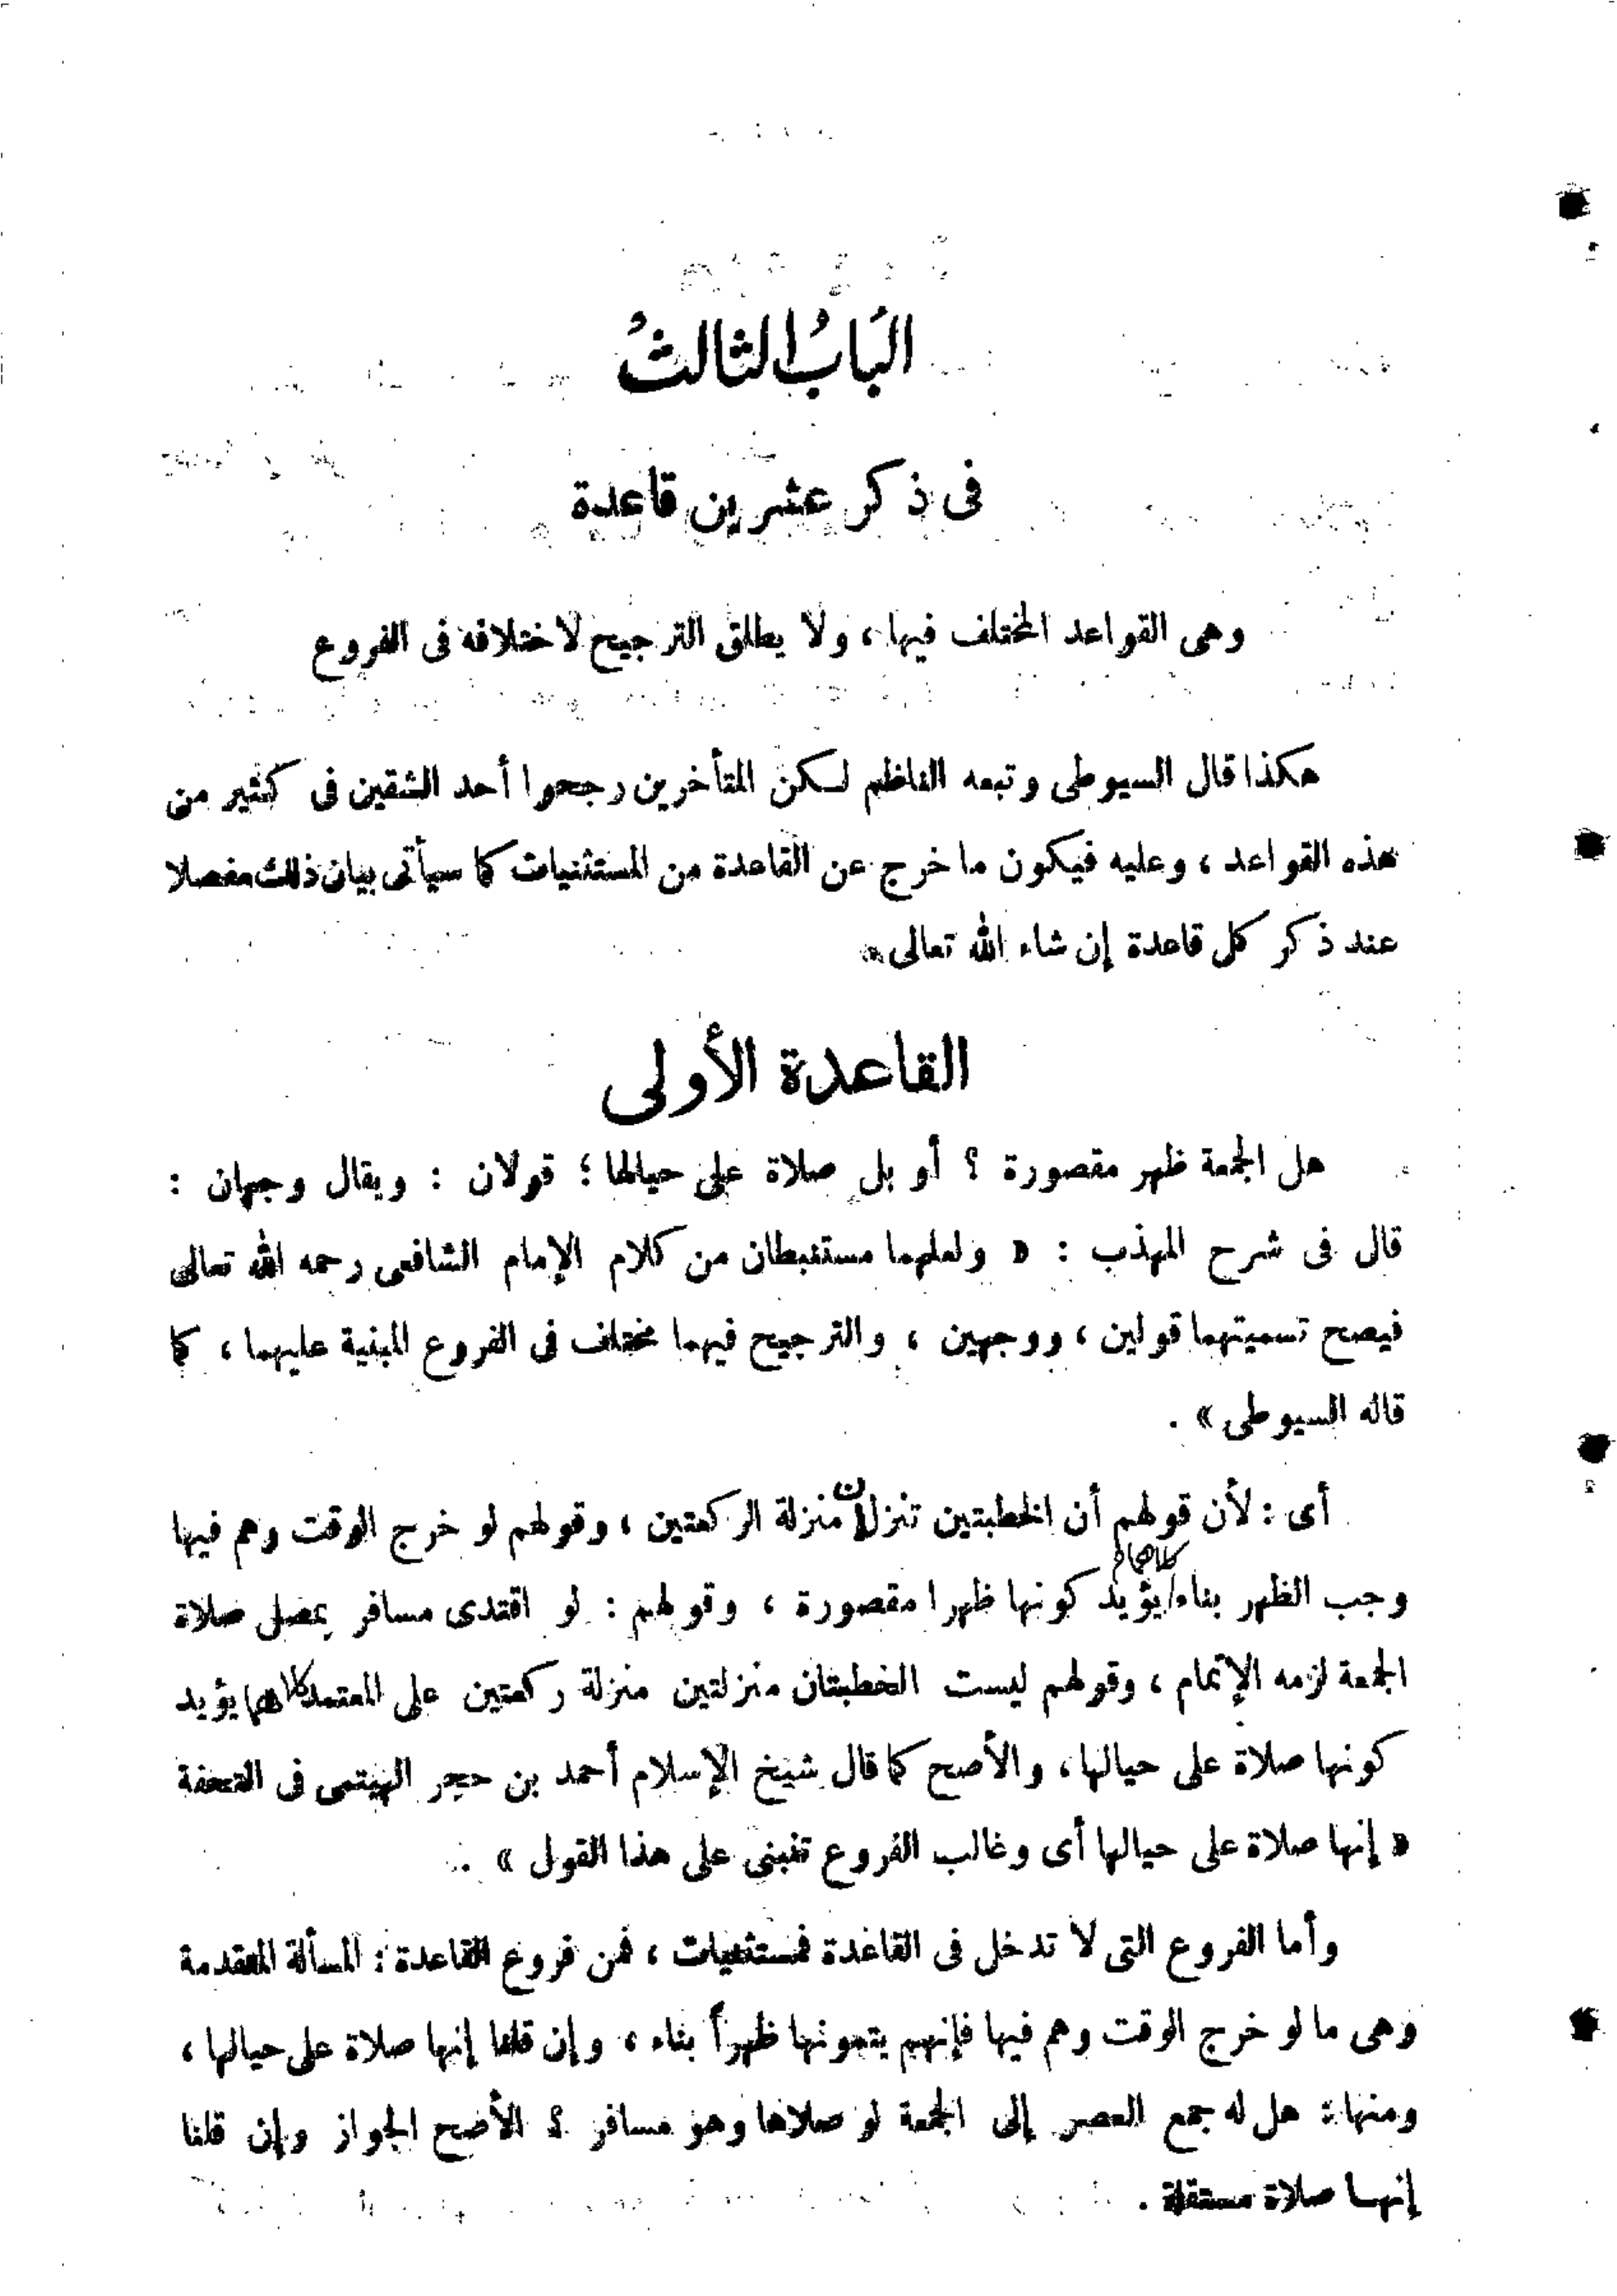 البَابُ الثالثُ
فى ذكر عشرين قاعدة
وهى القواعد المختلف فيها ، ولا يطلق الترجيح لاختلافه فى الفروع
هكذا قال السيوطى وتبعه الناظم لـكن المتأخرين رجحوا أحد الشقين فى كثير من
هذه القواعد ، وعليه فيكون ما خرج عن القاعدة من المستثنيات كما سيأتى بيان ذلك مفصلا
عند ذكر كل قاعدة إن شاء الله تعالى .
القاعدة الأولى
هل الجمعة ظهر مقصورة ؟ أو بل صلاة على حيالها ؛ قولان : ويقال وجهان :
قال فى شرح المهذب : « ولعلهما مستنبطان من كلام الإمام الشافعى رحمه الله تعالى
فيصح تسميتهما قولين ، ووجهين ، والترجيح فيهما مختلف فى الفروع المبنية عليهما ، كما
قاله السيوطى » .
أى : لأن قولهم أن الخطبتين تنزلان منزلة الركعتين ، وقولهم لو خرج الوقت وهم فيها
وجب الظهر بناء كلاهما يؤيد كونها ظهرا مقصورة ، وقولهم : لو اقتدى مسافر بمصل صلاة
الجمعة لزمه الإتمام ، وقولهم ليست الخطبتان منزلتين منزلة ركعتين على المعتمد كلاهما يؤيد
كونها صلاة على حيالها ، والأصح كما قال شيخ الإسلام أحمد بن حجر الهيتمى فى التحفة
« إنها صلاة على حيالها أى وغالب الفروع تنبنى على هذا القول » .
وأما الفروع التى لا تدخل فى القاعدة فمستثنيات ، فمن فروع القاعدة : المسألة المتقدمة
وهى ما لو خرج الوقت وهم فيها فإنهم يتمونها ظهراً بناء ، وإن قلنا إنها صلاة على حيالها ،
ومنها : هل له جمع العصر إلى الجمعة لو صلاها وهو مسافر ؟ الأصح الجواز وإن قلنا
إنهـا صلاة مستقلة .